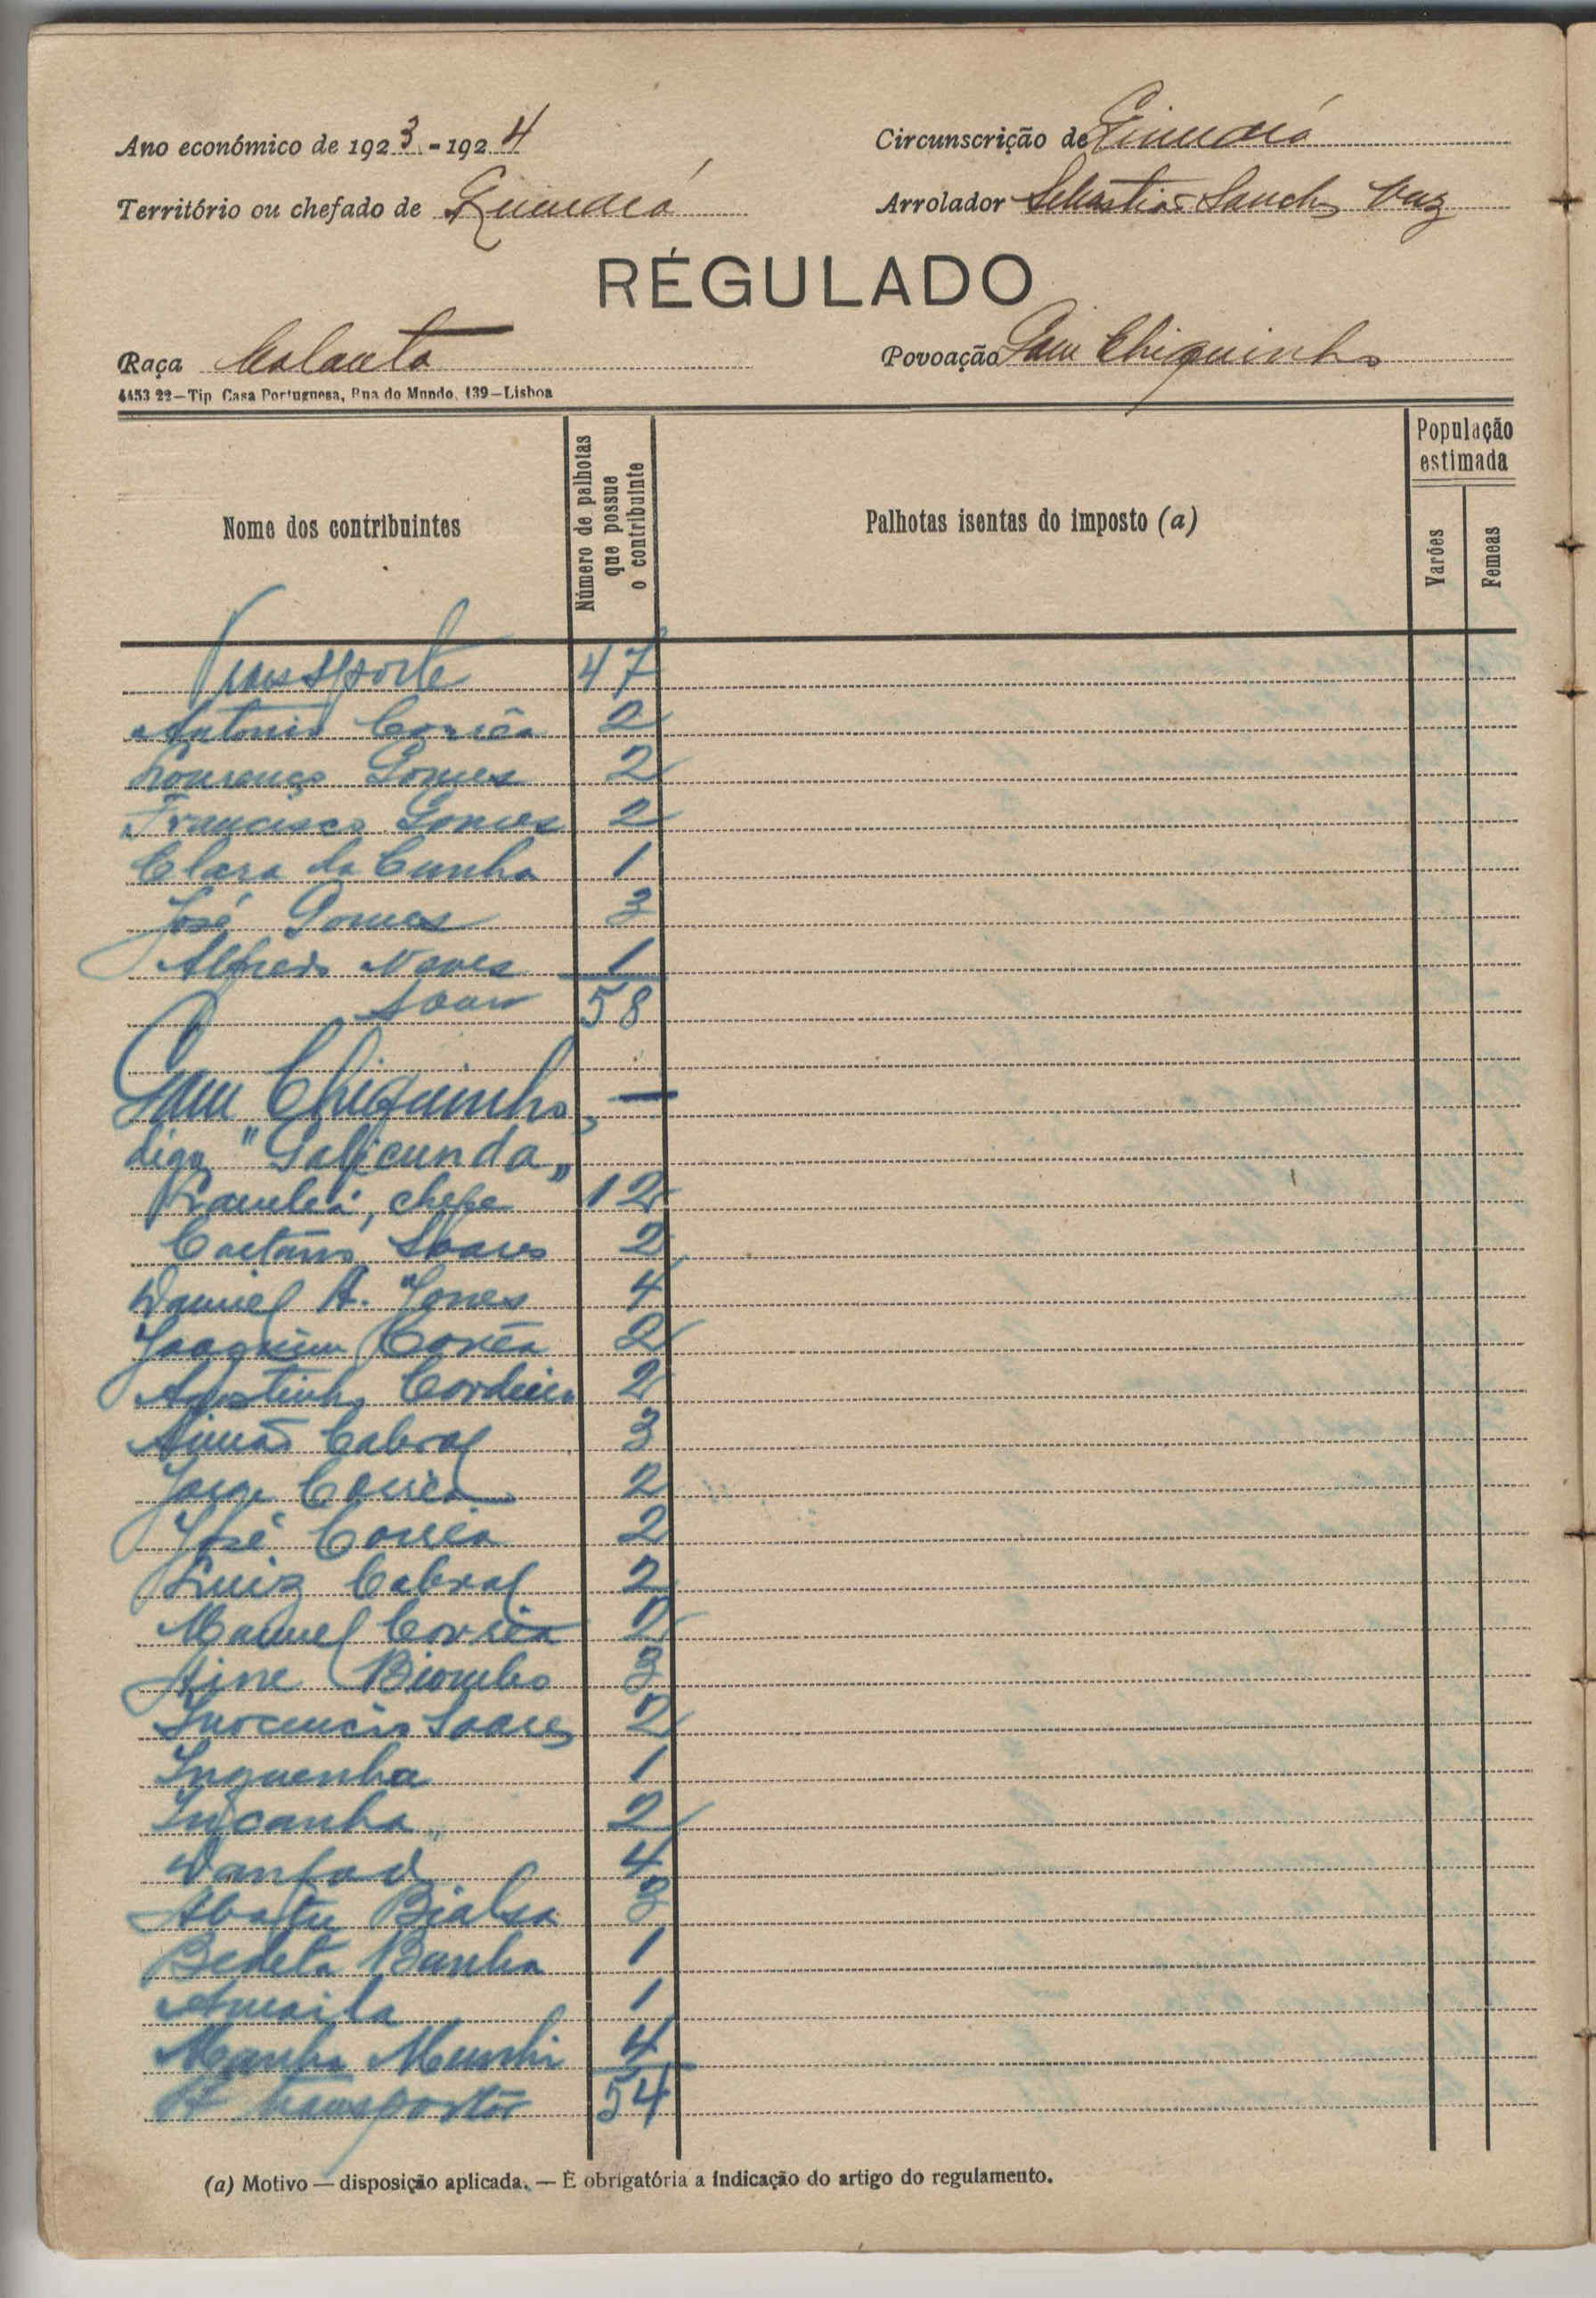 Ano económico de 1923-1924
Circunscrição de
Território ou chefado de
Arrolador Sebastião Sanches Vaz
RÉGULADO
Raça
Povoação Sam Chiquinho
4453 22—Tip Casa Portuguesa, Rua do Mundo, 139—Lisboa
Nome dos contribuintes
Número de palhotas que possue o contribuinte
Palhotas isentas do imposto (a)
População estimada
Varões
Femeas
Transporte 47
Antonio Corrêa 2
Lourenço Gomes 2
Francisco Gomes 2
Clara da Cunha 1
José Gomes 3
Alfredo Naves 1
Soma 58
Sam Chiquinho, —
digo "Salicunda"
chefe 12
Caetano Soares 2
Daniel A. Jones 4
Joaquim Corrêa 2
Agostinho Cordeiro 2
Simão Cabral 3
Jorge Corrêa 2
José Corrêa 2
Luiz Cabral 2
Manuel Corrêa 2
Biombo 3
Inocencio Soares 2
Inguenha 1
Incanha 2
Danfad 4
Bialsa 3
Bedeta Banha 1
Amaila 1
Manha Munhi 4
A transportar 54
(a) Motivo — disposição aplicada. — É obrigatória a indicação do artigo do regulamento.